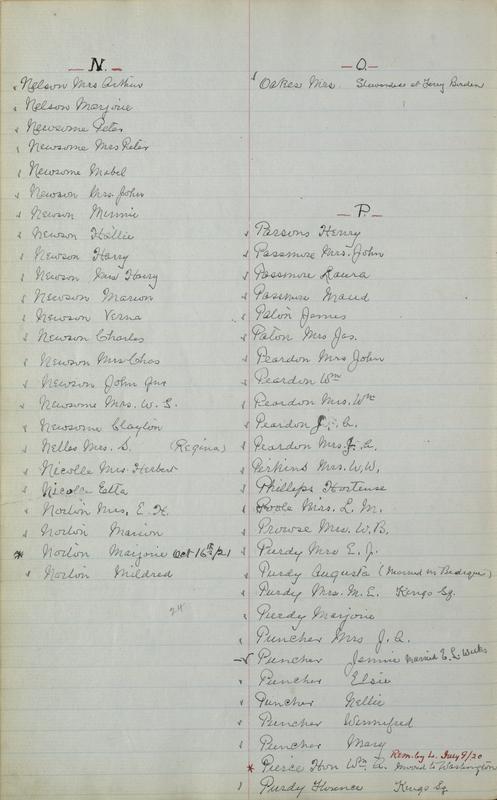 N.
Nelson Mrs Arthur
Nelson Marjorie
Newsome Peter
Newsome Mrs Peter
Newsome Mabel
Newson Mrs. John
Newson Minnie
Newson Hallie
Newson Harry
Newson Mrs Harry
Newson Marion
Newson Verna
Newson Charles
Newson Mrs Chas
Newson John Jnr
Newsome Mrs. W. S.
Newsome Clayton
Nelles Mrs. S. (Regina)
Nicolle Mrs. Herbert
Nicolle Etta
Norton Mrs. E. H.
Norton Marion
* Norton Marjorie Oct 16th/21
Norton Mildred
24
O.
Oakes Miss Stewardess at Ferry Borden
P.
Parsons Henry
Passmore Mrs. John
Passmore Laura
Passmore Maud
Paton James
Paton Mrs Jas.
Peardon Mrs John
Peardon Wm
Peardon Mrs. Wm
Peardon J. A.
Peardon Mrs. J. A.
Perkins Mrs. W. W.
Phillips Hortense
Poole Mrs. L. M.
Prowse Mrs. W. B.
Purdy Mrs E. J.
Purdy Augusta (Married in Bedeque)
Purdy Mrs. M. E. Kings Sq.
Purdy Marjorie
Puncher Mrs J. A.
Puncher Jennie Married E. L. Weeks
Puncher Elsie
Puncher Nellie
Puncher Winnifred
Puncher Mary
Rem. by L. July 9/20
* Pierce Hon Wm A. moved to Washington
Purdy Florence Kings Sq.